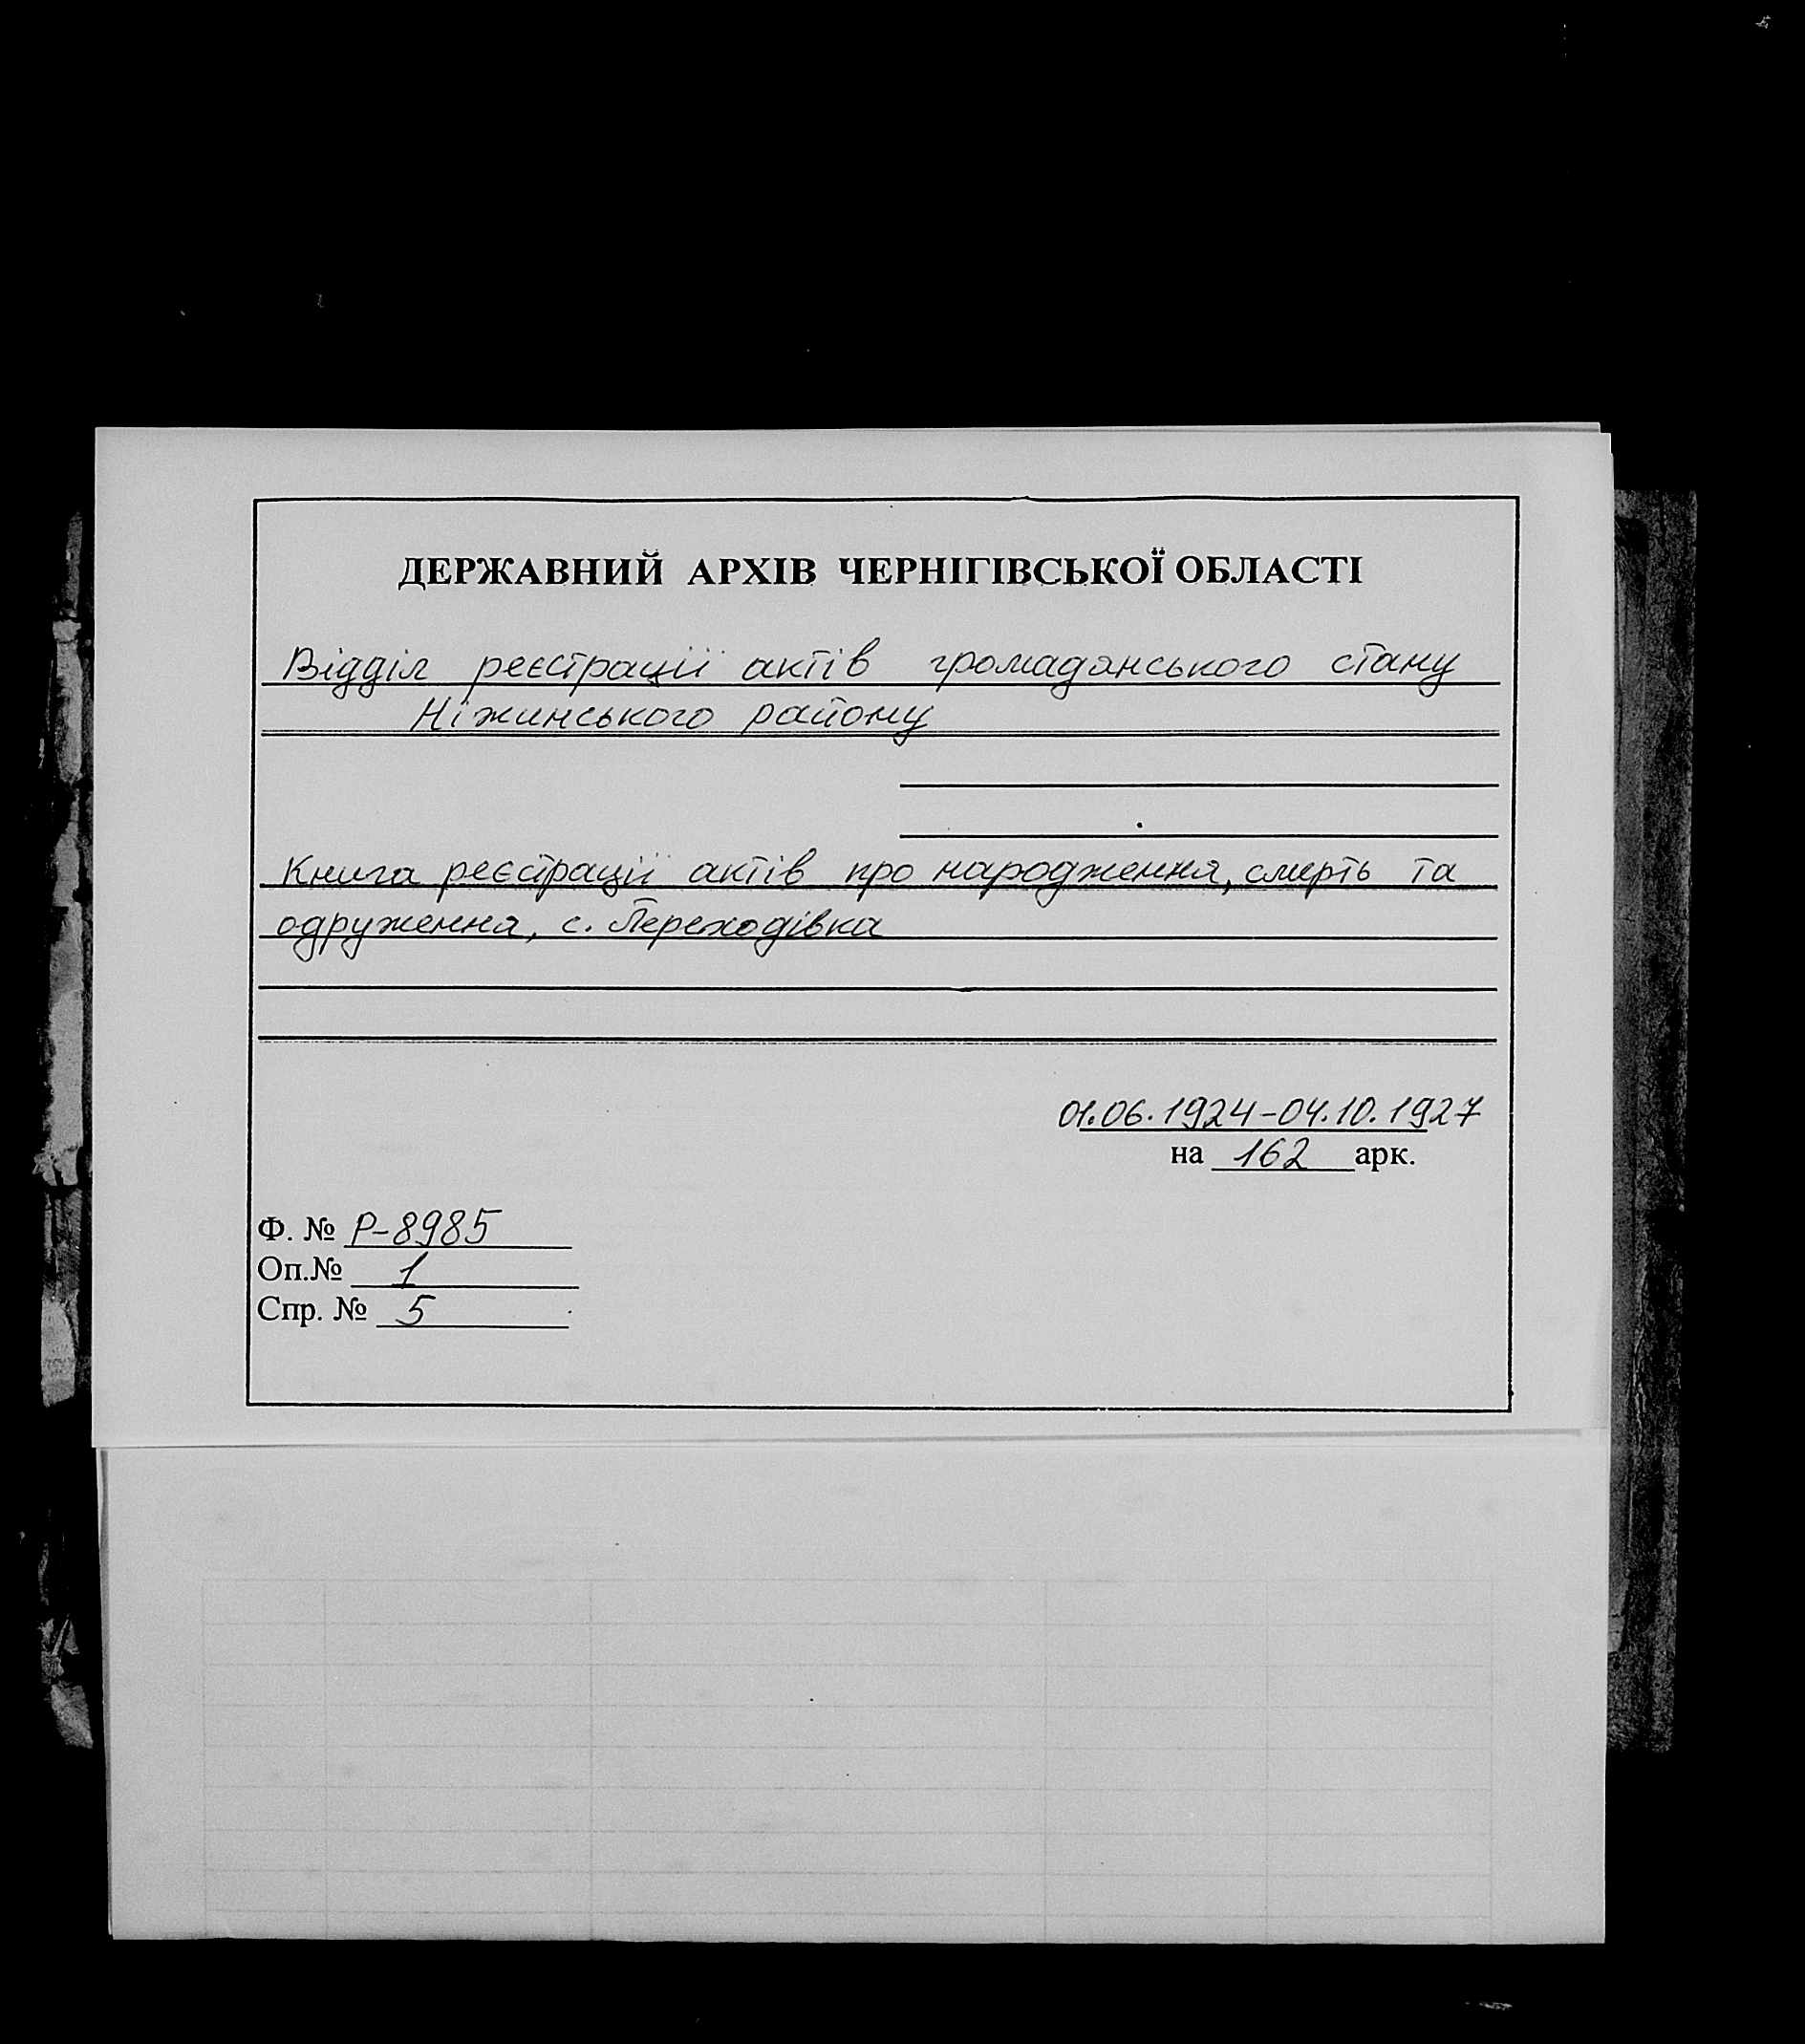 ДЕРЖАВНИЙ АРХІВ ЧЕРНІГІВСЬКОЇ ОБЛАСТІ
Відділ реєстрації актів громадянського стану
Ніжинського району
Книга реєстрації актів про народження, смерть та
одруження, с. Переходівка
01.06.1924-04.10.1927
на 162 арк.
Ф. № Р-8985
Оп.№ 1
Спр. № 5